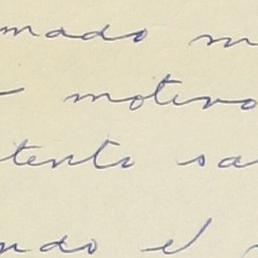 mado m
motivo
tento sa
ndo el